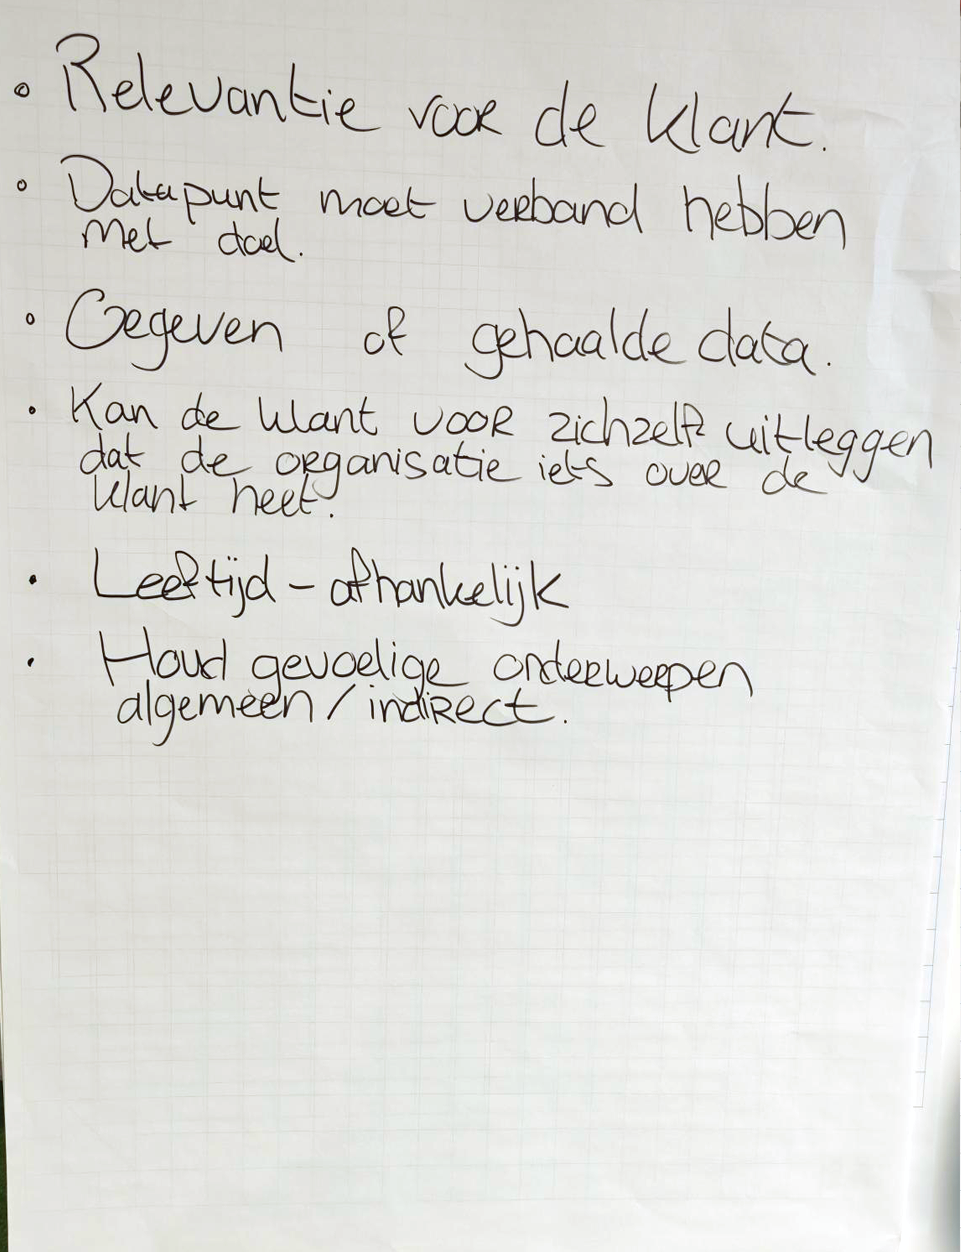 • Relevantie voor de klant.
• Datapunt moet verband hebben
met doel.
• Gegeven of gehaalde data.
• Kan de klant voor zichzelf uitleggen
dat de organisatie iets over de
klant heet.
• Leeftijd - afhankelijk
• Houd gevoelige onderwerpen
algemeen / indirect.